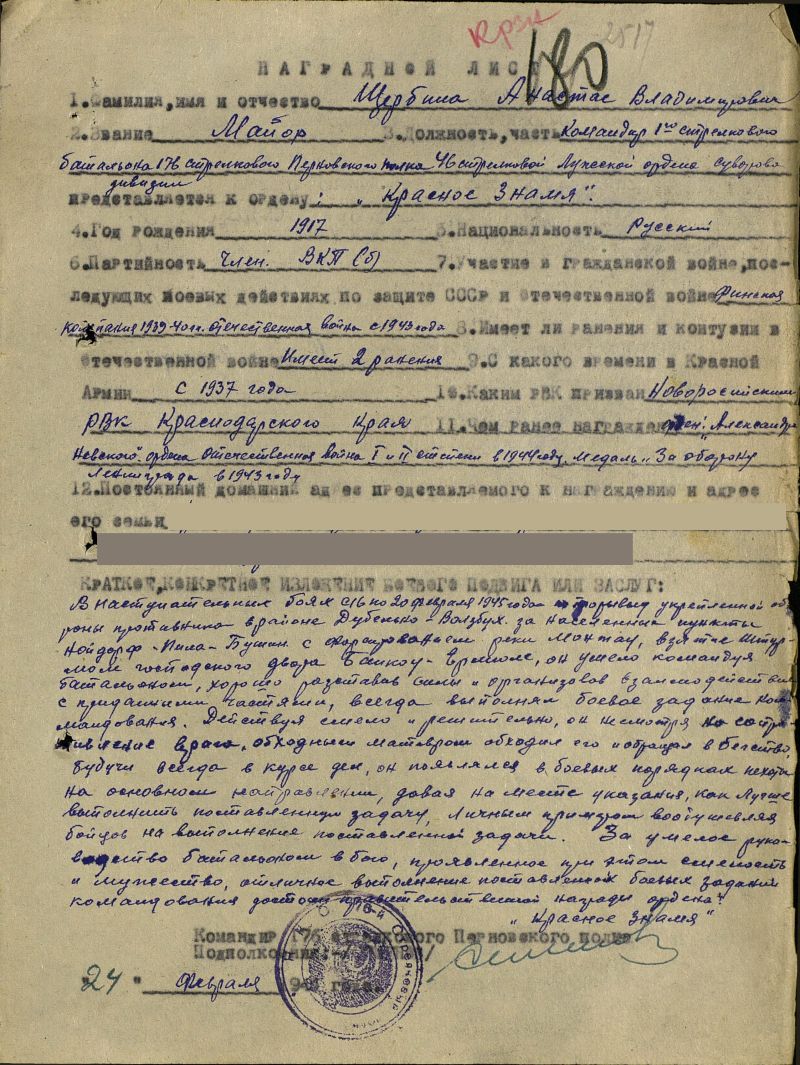 КРЗН
480 2517
НАГРАДНОЙ ЛИСТ
1.Фамилия,имя и отчество Щербина Анастас Владимирович
2.Звание Майор 3.Должность,часть Командир 1го стрелкового
батальона 176 стрелкового Перновского полка 46 стрелковой Лужской ордена Суворова
дивизии
представляется к ордену: "Красное Знамя".
4.Год рождения 1917 5.Национальность Русский
6.Партийность член: ВКП(б) 7.Участие в гражданской войне,пос-
ледующих боевых действиях по защите СССР и отечественной войне Финская
компания 1939-40 гг. отечественная война с 1943 года 8.Имеет ли ранения и контузии в
отечественной войне Имеет 2 ранения 9.С какого времени в Красной
Армии с 1937 года 10.Каким РВК призван Новоросийским
РВК Краснодарского Края 11.Чем ранее награжден орден: "Александра
Невского" ордена Отечественная война I и II степени в 1944 году, Медаль "За оборону
Ленинграда в 1943 году
12.Постоянный домашний адрес представляемого к награждению и адрес
его семьи
КРАТКОЕ,КОНКРЕТНОЕ ИЗЛОЖЕНИЕ БОЕВОГО ПОДВИГА ИЛИ ЗАСЛУГ:
В наступательных боях с 16 по 20 февраля 1945 года прорывы укрепленной обо-
роны противника в районе за населенные пункты
Нойдорф-Пила-Бушин с форсированием реки Монтау, взятие штур-
мом господского двора он умело командуя
батальоном, хорошо расставив силы и организовав взаимодействие
с приданными частями, всегда выполнял боевое задание ко-
мандования. Действуя смело и решительно, он несмотря на сопро-
тивление врага, обходным маневром обходил его и обращал в бегство,
будучи всегда в курсе дел, он появлялся в боевых порядках пехоты
на основном направлении, давая на месте указания, как лучше
выполнить поставленную задачу, личным примером воодушевляя
бойцов на выполнение поставленной задачи. За умелое руко-
водство батальоном в бою, проявленное при этом смелость
и мужество, отличное выполнение поставленных боевых заданий
командования достоин правительственной награды ордена:
"Красное Знамя"
Командир 176 стрелкового Перновского полка
Подполковник
"24" февраля 194 года